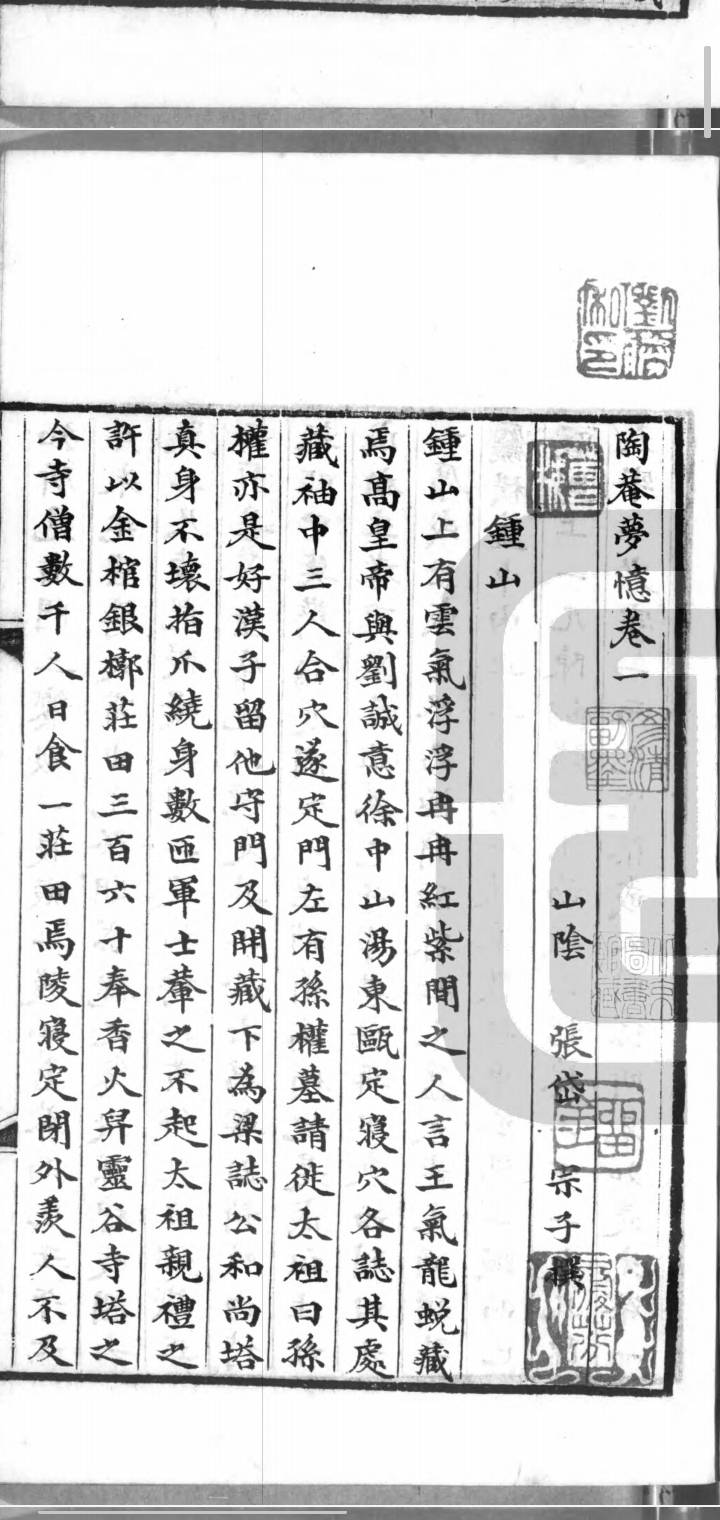 陶菴夢憶卷一
山陰 張岱 宗子 撰
鍾山
鍾山上有雲氣浮浮冉冉紅紫間之人言王氣龍蛻藏
焉高皇帝與劉誠意徐中山湯東甌定寢穴各誌其處
藏袖中三人合穴遂定門左有孫權墓請徙太祖曰孫
權亦是好漢子留他守門及開藏下為梁誌公和尚塔
真身不壞指爪繞身數匝軍士輂之不起太祖親禮之
許以金棺銀槨莊田三百六十奉香火舁靈谷寺塔之
今寺僧數千人日食一莊田焉陵寢定閉外羨人不及